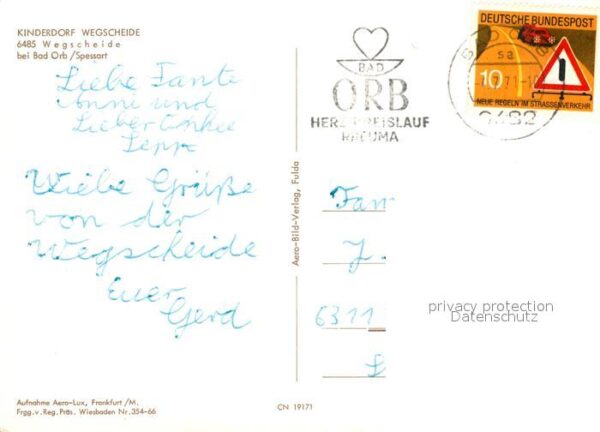 KINDERDORF WEGSCHEIDE
6485 Wegscheide
bei Bad Orb/Spessart
Liebe Tante
Anni und
Lieber Onkel
Sepp
Viele Grüße
von der
Wegscheide
Euer
Gerd
Aufnahme Aero-Lux, Frankfurt/M.
Frgg.v.Reg.Präs. Wiesbaden Nr.354-66
Aero-Bild-Verlag, Fulda
CN 19171
BAD
ORB
HERZ KREISLAUF
RHEUMA
DEUTSCHE BUNDESPOST
10
NEUE REGELN IM STRASSENVERKEHR
6482
Fam
J.
6311
privacy protection
Datenschutz